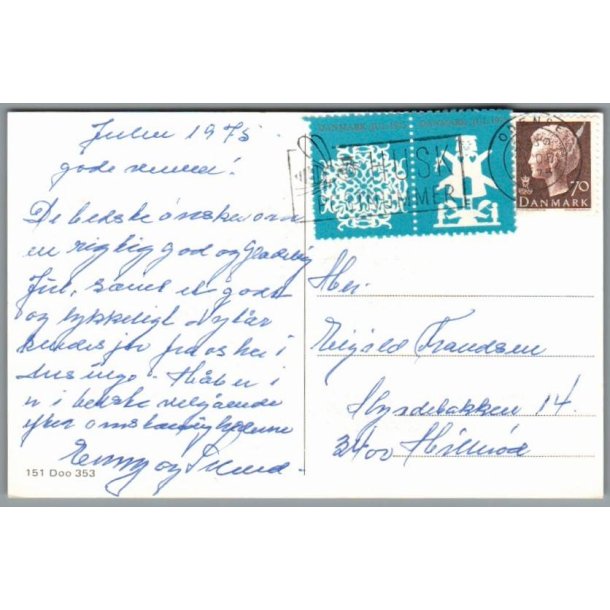 Julen 1975
gode venner!
De bedste ønsker om
en rigtig god og glædelig
Jul, samt et godt
og lykkeligt nytår
sendes fra os her i
Håber i
er i bedste velgående
efter omstændighederne
Jenny og
151 Doo 353
DANMARK JUL 197
DANMARK JUL 197
HUSK
POSTNUMMER
ODENSE
70
DANMARK
Hr.
Frandsen
Hyrdebakken 14.
3400 Hillerød